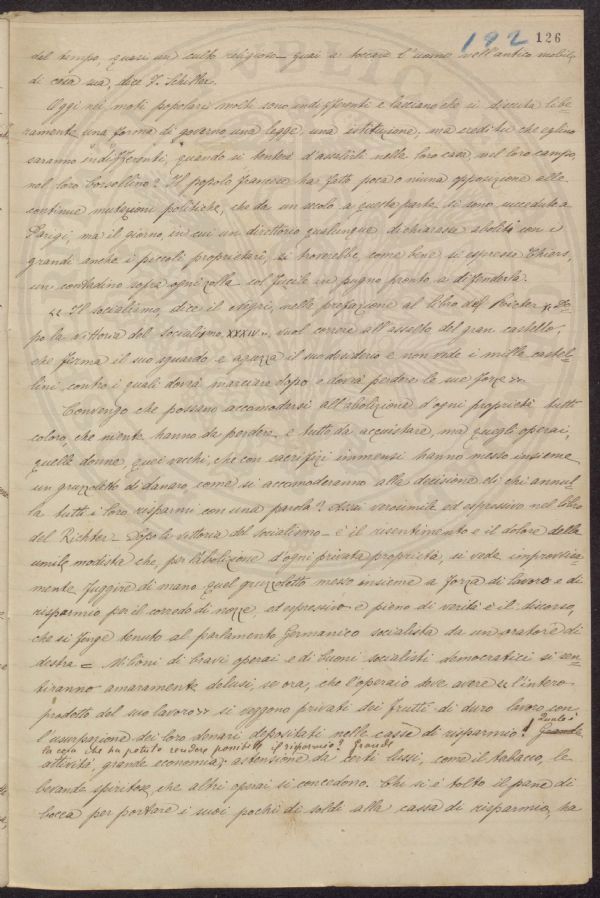 192 126
del tempo, quasi un culto religioso – guai a toccare l'uomo nell'antica mobilia
di casa sua, dice F. Schiller.
Oggi nei moti popolari molti sono indifferenti e lasciano che si discuta libe-
ramente una forma di governo una legge, una istituzione, ma credi tu che eglino
saranno indifferenti, quando si tenterà d'assalirli nella loro casa, nel loro campo,
nel loro borsellino? Il popolo francese ha fatto poca o niuna opposizione alle
continue mutazioni politiche, che da un secolo a questa parte si sono succedute a
Parigi, ma il giorno, in cui un direttorio qualunque dichiarasse aboliti con i
grandi anche i piccoli proprietari, si troverebbe, come bene si espresse Thiers,
un contadino sopra ogni zolla col fucile in pugno pronto a difenderla.
« Il socialismo, dice il Negri, nella prefazione al libro del Richter « Do-
po la vittoria del socialismo XXXIV », vuol correre all'assalto del gran castello,
che ferma il suo sguardo e aguzza il suo desiderio e non vede i mille castel-
lini contro i quali dovrà marciare dopo e dovrà perdere le sue forze ».
Convengo che possano accomodarsi all'abolizione d'ogni proprietà tutti
coloro, che niente hanno da perdere e tutto da acquistare, ma quegli operai,
quelle donne, quei vecchi, che con sacrifizi immensi hanno messo insieme
un gruzzoletto di danaro, come si accomoderanno alla decisione di chi annul-
la tutti i loro risparmi con una parola? Assai verosimile ed espressivo nel libro
del Richter – Dopo la vittoria del socialismo – è il risentimento e il dolore della
umile modista che, per l'abolizione d'ogni privata proprietà, si vede improvvisa-
mente fuggire di mano quel gruzzoletto messo insieme a forza di lavoro e di
risparmio per il corredo di nozze, ed espressivo e pieno di verità è il discorso,
che si finge tenuto al parlamento Germanico socialista da un oratore di
destra = Milioni di bravi operai e di buoni socialisti democratici si sen-
tiranno amaramente delusi, se ora, che l'operaio deve avere « l'intero
prodotto del suo lavoro » si veggono privati dei frutti di duro lavoro con
l'usurpazione dei loro denari depositati nelle casse di risparmio! Grande
la cosa che ha potuto rendere possibile il risparmio? Grande
attività, grande economia, astensione da certi lussi, come il tabacco, le
bevande spiritose, che altri operai si concedono. Chi si è tolto il pane di
bocca per portare i suoi pochi di soldi alla cassa di risparmio, ha